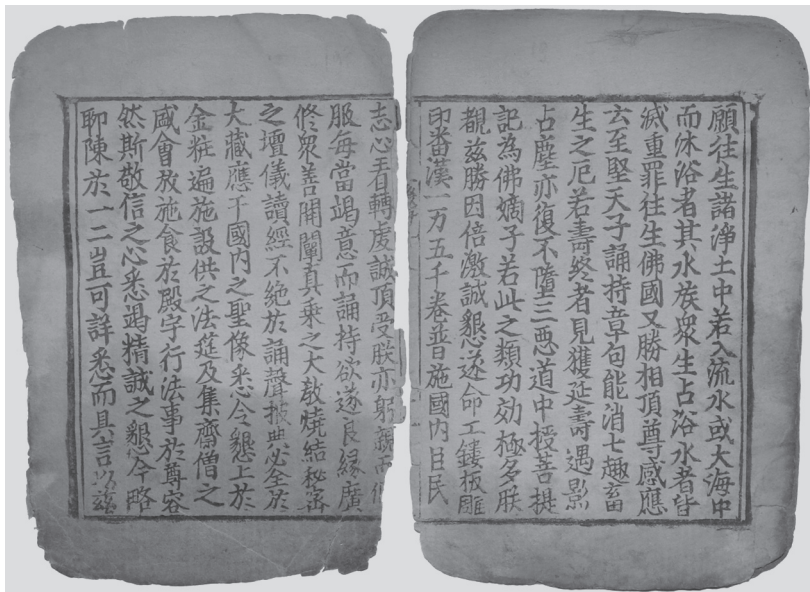 願往生諸淨土中若入流水或大海中
而沐浴者其水族衆生占浴水者皆
滅重罪往生佛國又勝相頂尊感應
云至堅天子誦持章句能消七趣畜
生之厄若壽終者見獲延壽遇影
占塵亦復不墮三惡道中授菩提
記為佛嫡子若此之類功効極多朕
覩兹勝因倍激誠懇遂命工鏤板雕
印番漢一万五千卷普施國内臣民
志心看轉虔誠頂受朕亦躬親而
服每當竭意而誦持欲遂良緣廣
修衆善開闡真乘之大教燒結秘密
之壇儀讀經不絕於誦聲披典必全於
大藏應干國内之聖像悉令懇上於
金粧遍施設供之法筵及集齋僧之
盛會放施食於殿宇行法事於尊容
然斯敬信之心悉竭精誠之懇今略
聊陳於一二豈可詳悉而具言以兹